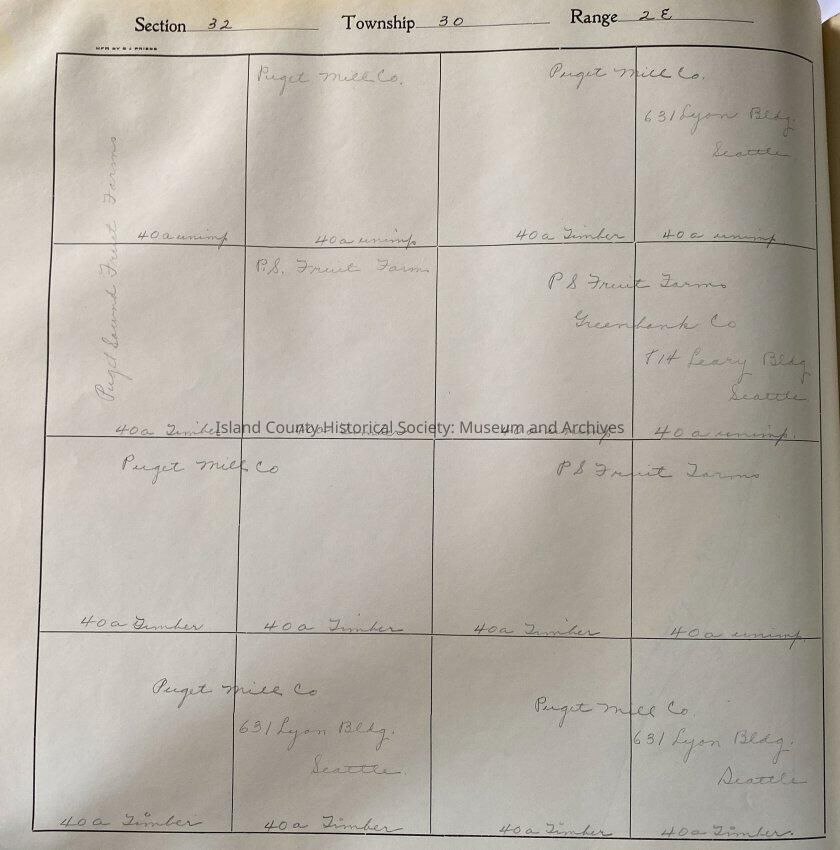 Section 32 Township 30 Range 2 E
Puget Mill Co.
Puget Mill Co.
631 Lyon Bldg.
Seattle
Puget Sound Fruit Farms
40 a unimp
40 a unimp.
40 a Timber
40 a unimp.
P.S. Fruit Farms
P S Fruit Farms
Greenbank Co
714 Leary Bldg
Seattle
40 a Timber
40 a unimp.
Island County Historical Society: Museum and Archives
Puget Mill Co
P S Fruit Farms
40 a Timber
40 a Timber
40 a Timber
40 a unimp.
Puget Mill Co
631 Lyon Bldg.
Seattle.
Puget Mill Co
631 Lyon Bldg.
Seattle
40 a Timber
40 a Timber
40 a Timber
40 a Timber.